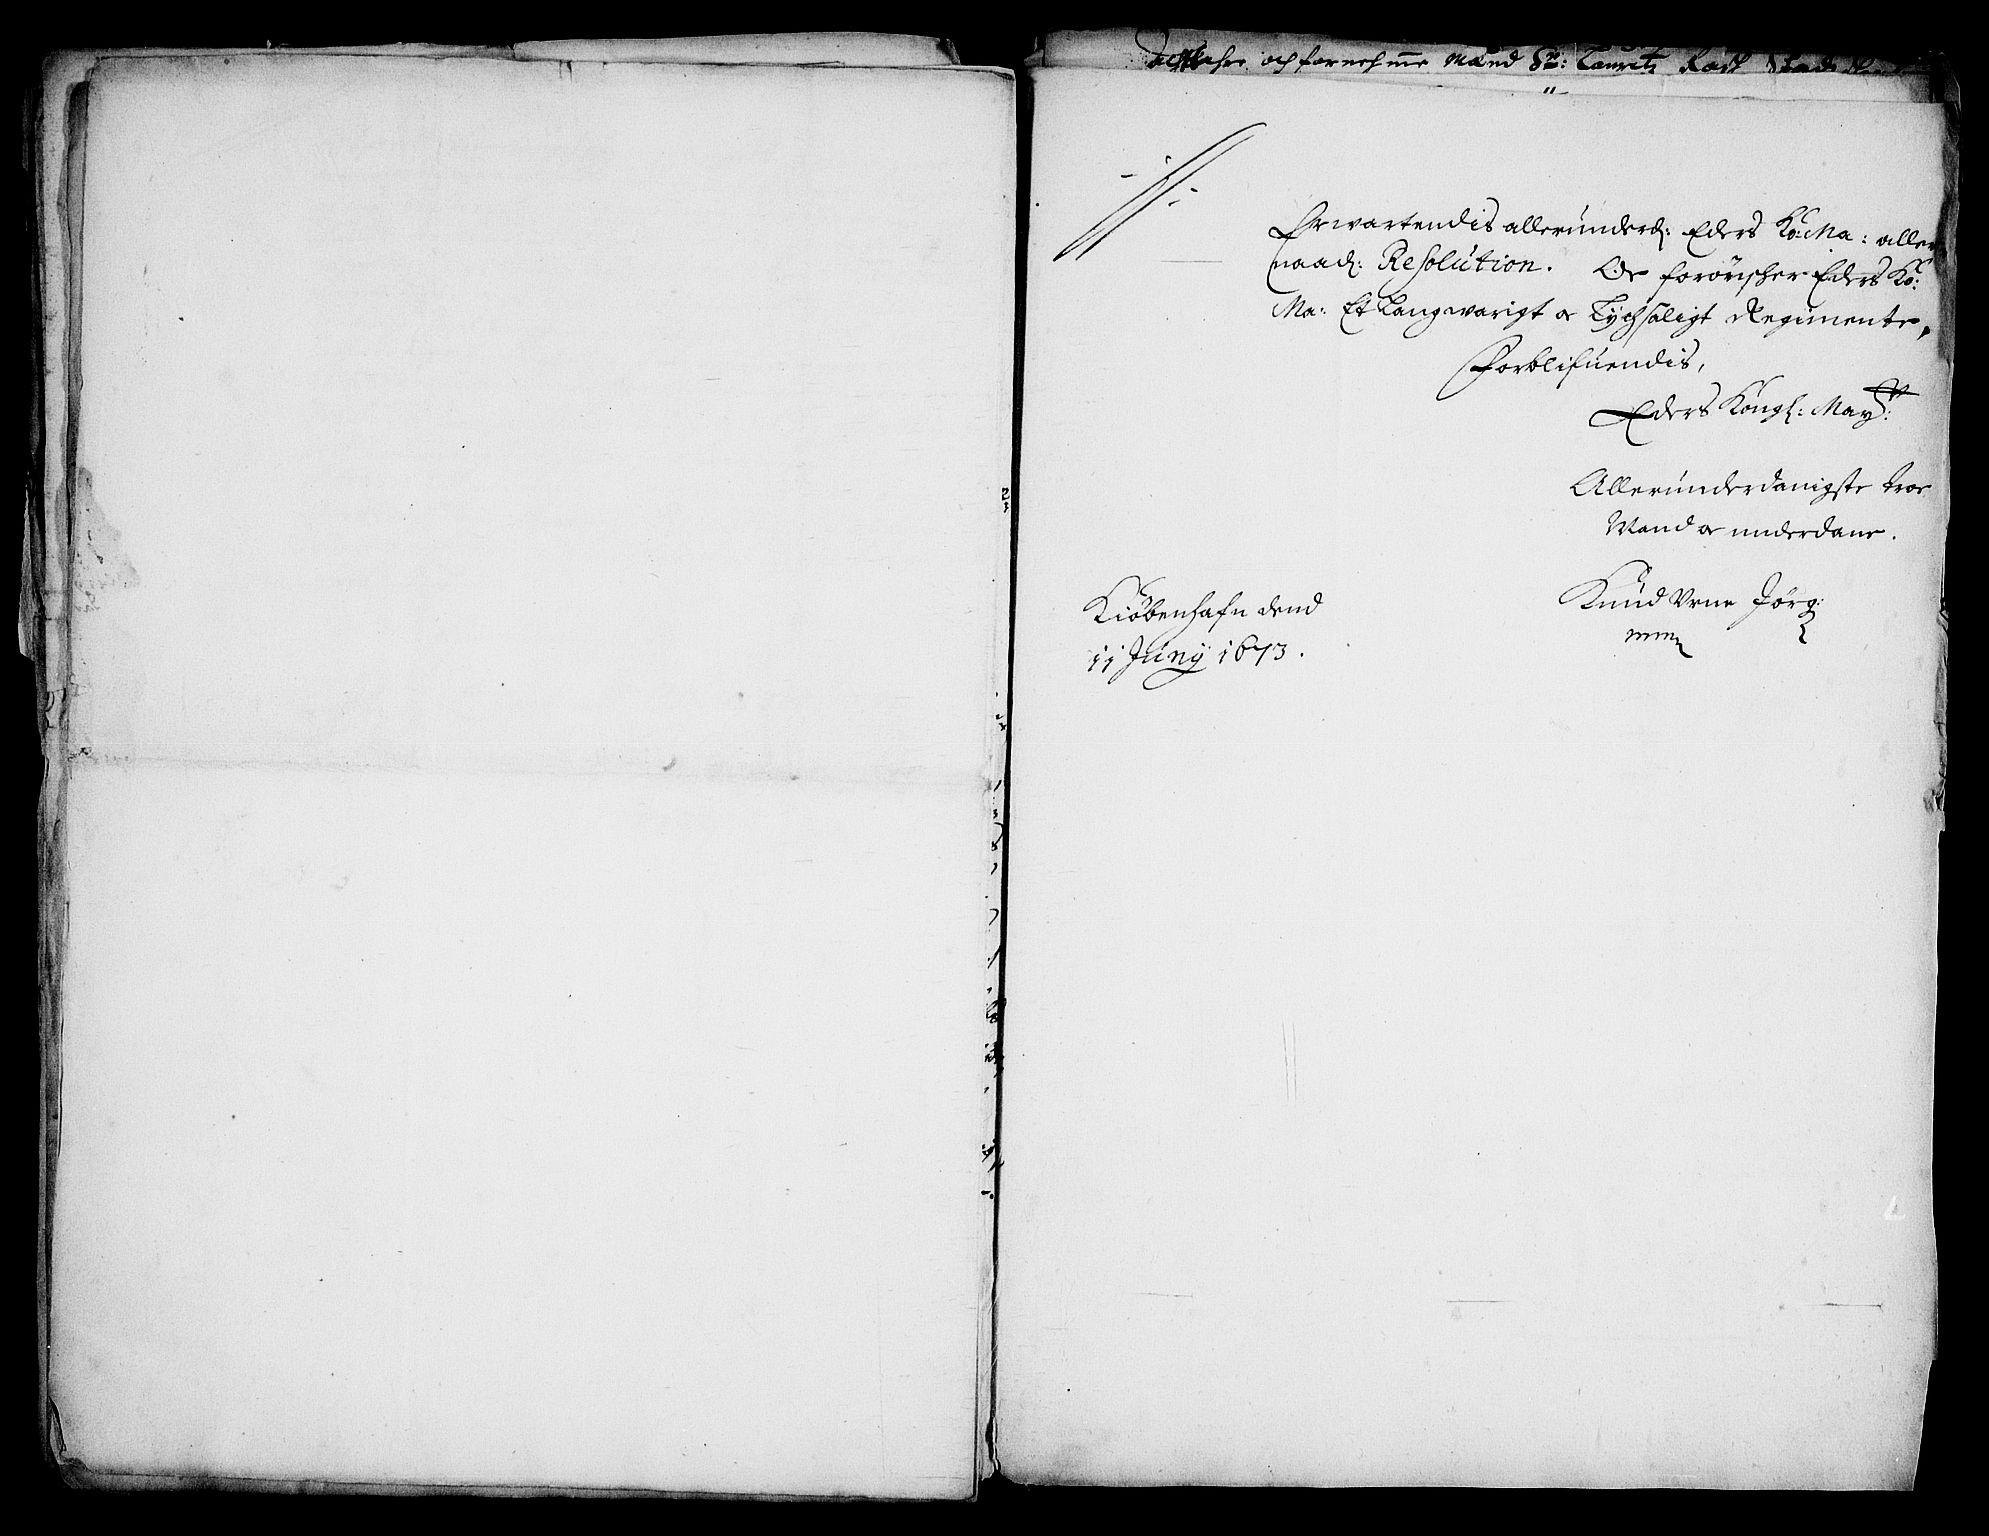 och fornehme Mænd Sr: Lauritz
Erwartendis allerunderd: Eders Ko: Ma: aller
naad: Resolution. Oc forønscher Eders Ko:
Ma: Et Langwarigt oc Lychsaligt Regimente,
Forblifuendis,
Eders Kongl: Mayts:
Allerunderdanigste troe
Mand oc underdane.
Knud Vrne Jørg:
mm
Kiøbenhafn dend
11 Juny 1673.